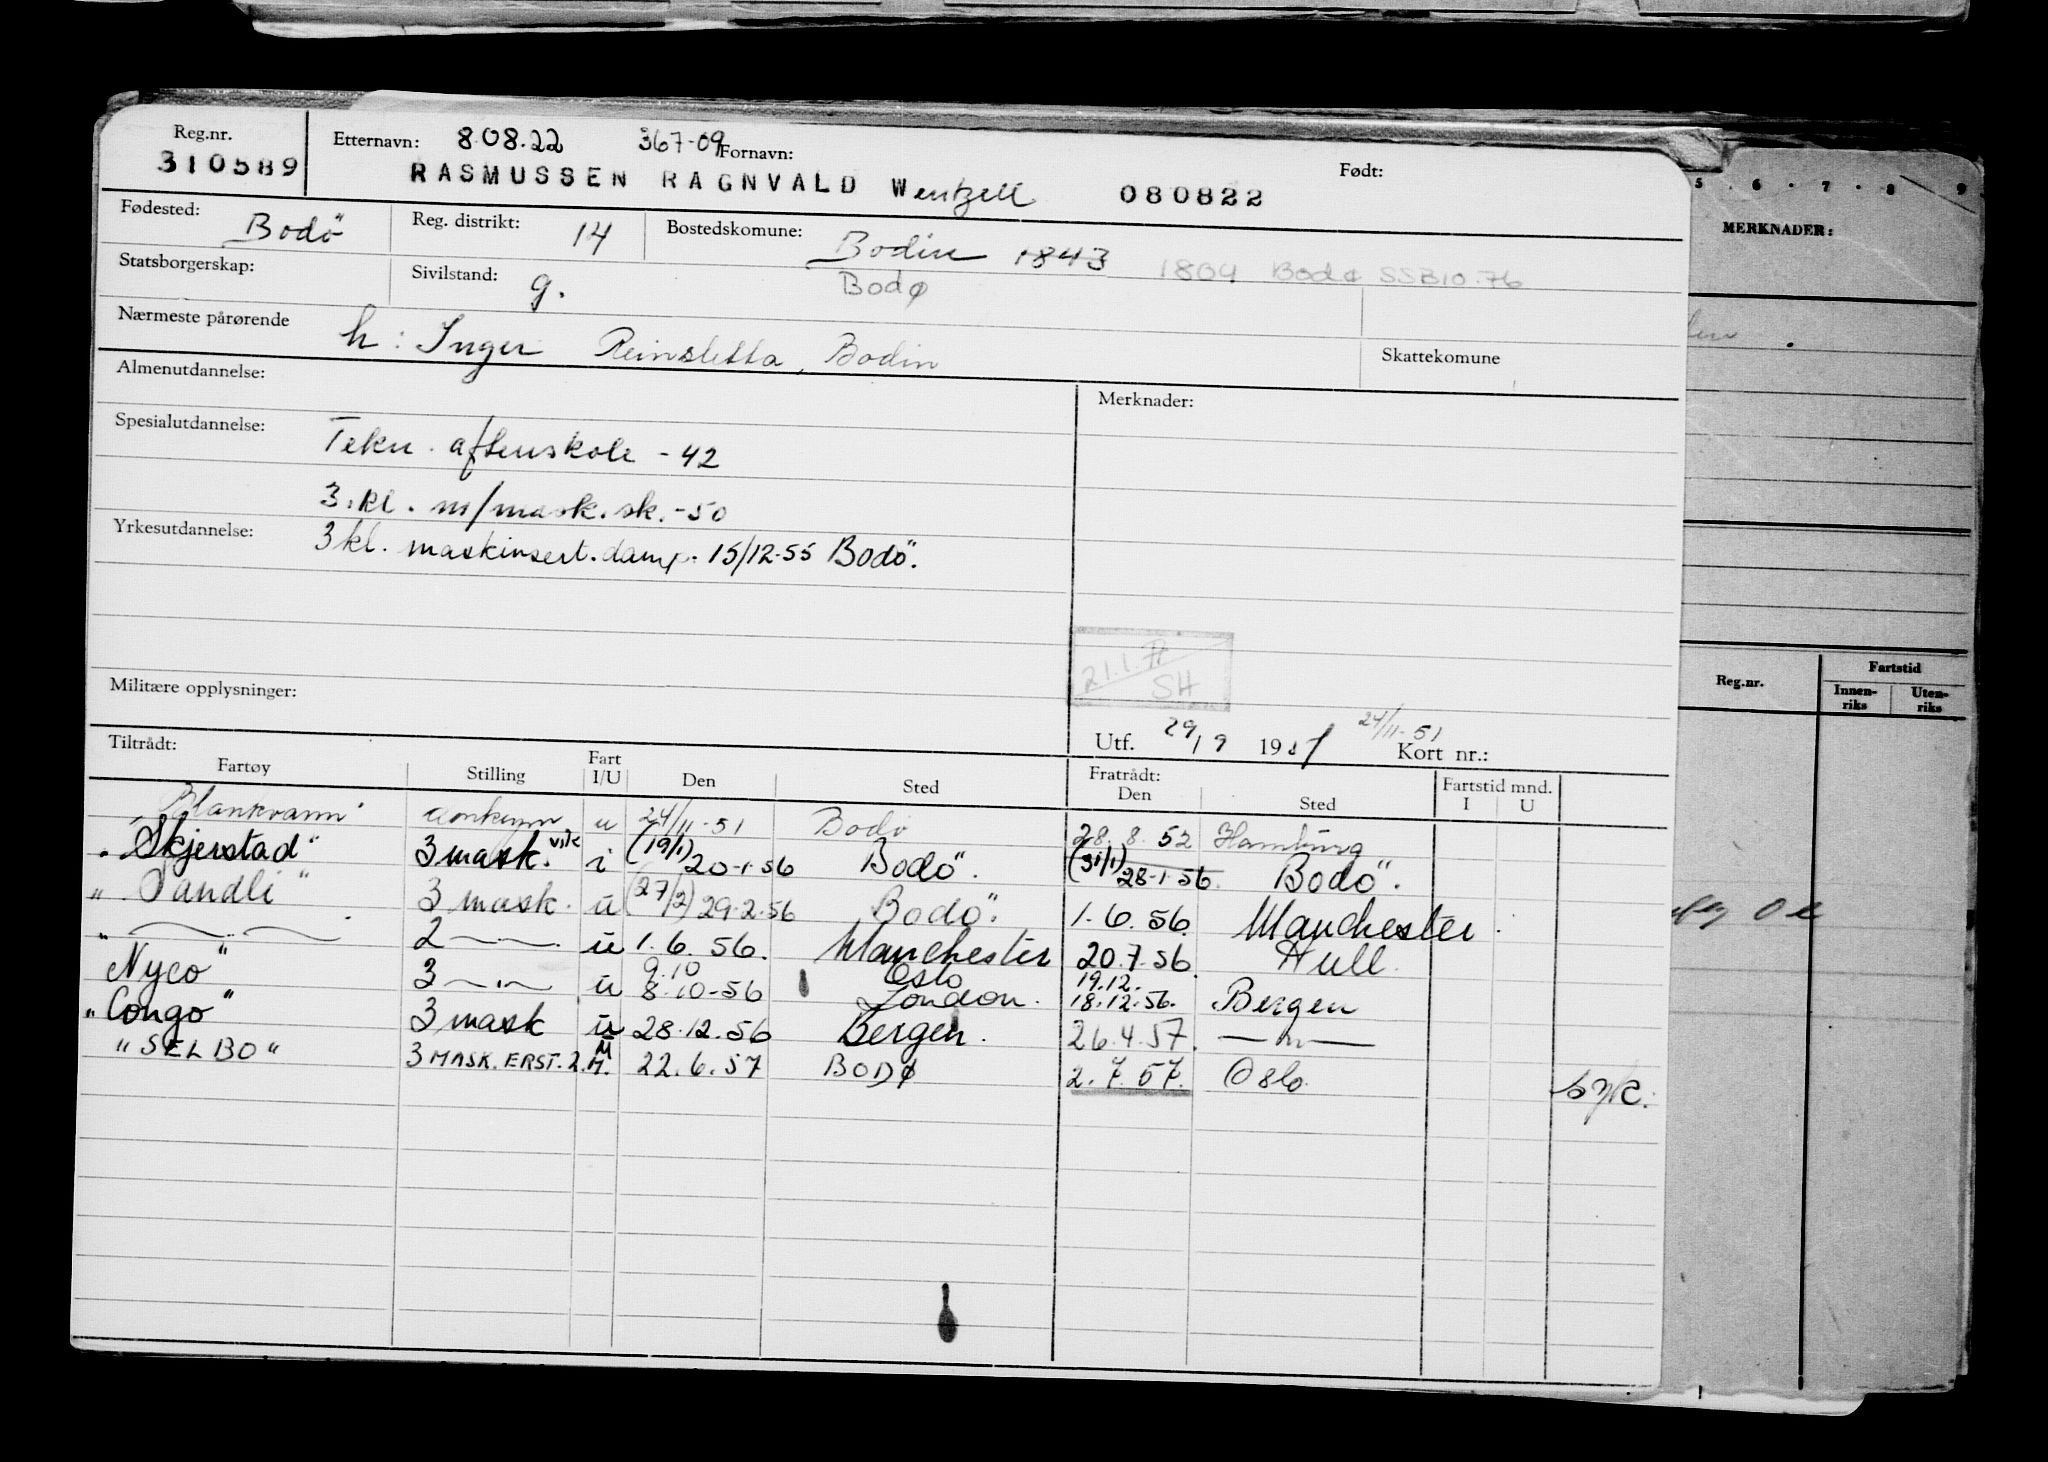 Reg.nr. Etternavn: 8.08.22 367-09 Fornavn: Født:
310589 RASMUSSEN RAGNVALD Wentzell 080822
Fødested: Bodö Reg. distrikt: 14 Bostedskomune: Bodin 1843 1804 Bodø SSB10.76
Statsborgerskap: Sivilstand: g. Bodø
Nærmeste pårørende h: Inger Reinsletta, Bodin Skattekomune
Almenutdannelse: Merknader:
Spesialutdannelse: Tekn. aftenskole - 42
3.kl. m/mask.sk.-50
Yrkesutdannelse: 3kl. maskinsert.damp. 15/12-55 Bodö.
21.1.77
SH
Militære opplysninger:
Utf. 29/9 1951 24/11-51 Kort nr.:
Tiltrådt: Fratrådt:
Fartøy Stilling Fart I/U Den Sted Den Sted Fartstid mnd. I U
"Blankvann" u 24/11-51 Bodö 28.8.52 Hamburg
"Skjerstad" 3 mask. vik i (19/1) 20-1-56 Bodö. (31/1) 28-1-56. Bodö.
"Sandli" 3 mask. u (27/2) 29.2.56 Bodö. 1.6.56. Manchester.
" — " — 2 — " — u 1.6.56. Manchester 20.7.56. Hull.
"Nyco" 3 — " — u 9.10 8.10-56 Oslo London. 19.12. 18.12.56. Bergen
"Congo" 3 mask u 28.12.56 Bergen. 26.4.57. — " —
"SELBO" 3 MASK. ERST. 2.M. U 22.6.57 BODØ 2.7.57. Oslo. syk.
5 · 6 · 7 · 8 · 9
MERKNADER:
Reg.nr. Fartstid
Innen-riks Uten-riks